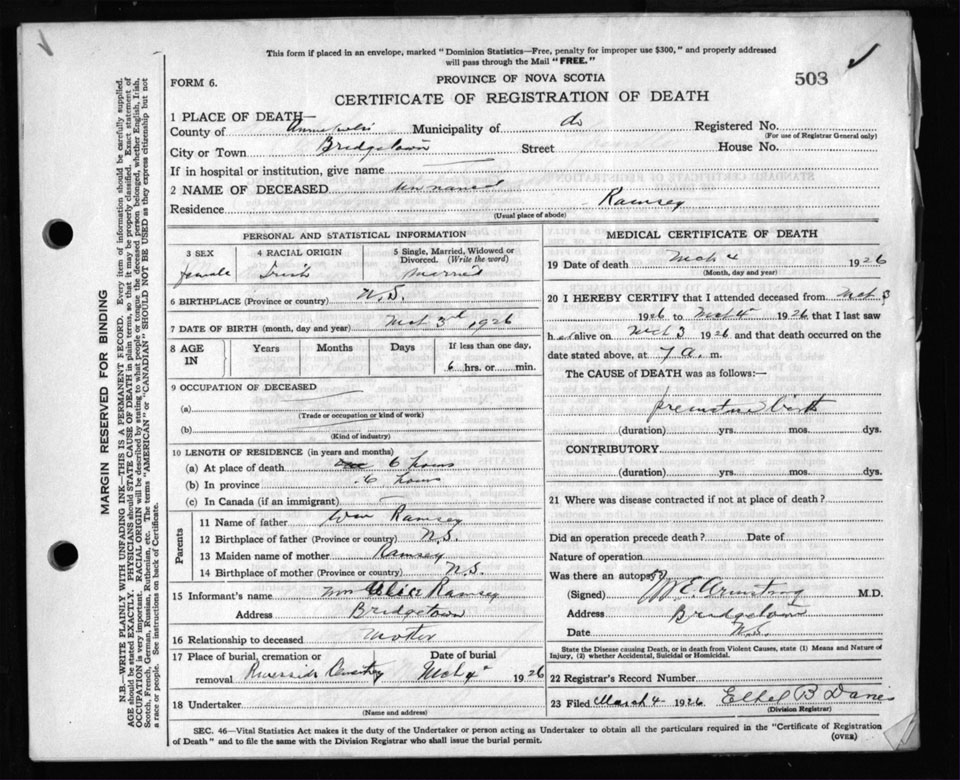 This form if placed in an envelope, marked "Dominion Statistics—Free, penalty for improper use $300," and properly addressed
will pass through the Mail "FREE."
FORM 6.
PROVINCE OF NOVA SCOTIA
503
CERTIFICATE OF REGISTRATION OF DEATH
1 PLACE OF DEATH—
County of Annapolis Municipality of do Registered No.
(For use of Registrar General only)
City or Town Bridgetown Street House No.
If in hospital or institution, give name
2 NAME OF DECEASED unnamed Ramsey
Residence
(Usual place of abode)
PERSONAL AND STATISTICAL INFORMATION
3 SEX
female
4 RACIAL ORIGIN
Irish
5 Single, Married, Widowed or
Divorced. (Write the word)
married
6 BIRTHPLACE (Province or country) N.S.
7 DATE OF BIRTH (month, day and year) Mch 3rd 1926
8 AGE
IN
Years Months Days
If less than one day,
6 hrs. or min.
9 OCCUPATION OF DECEASED
(a)
(Trade or occupation or kind of work)
(b)
(Kind of industry)
10 LENGTH OF RESIDENCE (in years and months)
(a) At place of death 6 hours
(b) In province 6 hours
(c) In Canada (if an immigrant)
Parents
11 Name of father Wm Ramsey
12 Birthplace of father (Province or country) N.S.
13 Maiden name of mother Ramsey
14 Birthplace of mother (Province or country) N.S.
15 Informant's name Alice Ramsey
Address Bridgetown
16 Relationship to deceased Mother
17 Place of burial, cremation or
removal Riverside Cemetery
Date of burial
Mch 4 1926
18 Undertaker
(Name and address)
MEDICAL CERTIFICATE OF DEATH
19 Date of death Mch 4 1926
(Month, day and year)
20 I HEREBY CERTIFY that I attended deceased from Mch 3
1926 to Mch 4 1926 that I last saw
her alive on Mch 3 1926 and that death occurred on the
date stated above, at 7 a. m.
The CAUSE of DEATH was as follows:—
premature birth
(duration) yrs. mos. dys.
CONTRIBUTORY
(duration) yrs. mos. dys.
21 Where was disease contracted if not at place of death?
Did an operation precede death? Date of
Nature of operation
Was there an autopsy?
(Signed) M E Armstrong M.D.
Address Bridgetown
Date N.S.
State the Disease causing Death, or in death from Violent Causes, state (1) Means and Nature of
Injury, (2) whether Accidental, Suicidal or Homicidal.
22 Registrar's Record Number
23 Filed March 4 1926 Ethel B
(Division Registrar)
SEC. 46—Vital Statistics Act makes it the duty of the Undertaker or person acting as Undertaker to obtain all the particulars required in the "Certificate of Registration
of Death" and to file the same with the Division Registrar who shall issue the burial permit.
(OVER)
MARGIN RESERVED FOR BINDING
N.B.—WRITE PLAINLY WITH UNFADING INK—THIS IS A PERMANENT RECORD. Every item of information should be carefully supplied.
AGE should be stated EXACTLY. PHYSICIANS should STATE CAUSE OF DEATH in plain terms, so that it may be properly classified. Exact statement of
OCCUPATION is very important. RACIAL ORIGIN will be described by stating to what people or tongue the deceased person belonged, whether English, Irish,
Scotch, French, German, Russian, Ruthenian, etc. The terms "AMERICAN" or "CANADIAN" SHOULD NOT BE USED as they express citizenship but not
a race or people. See instructions on back of Certificate.